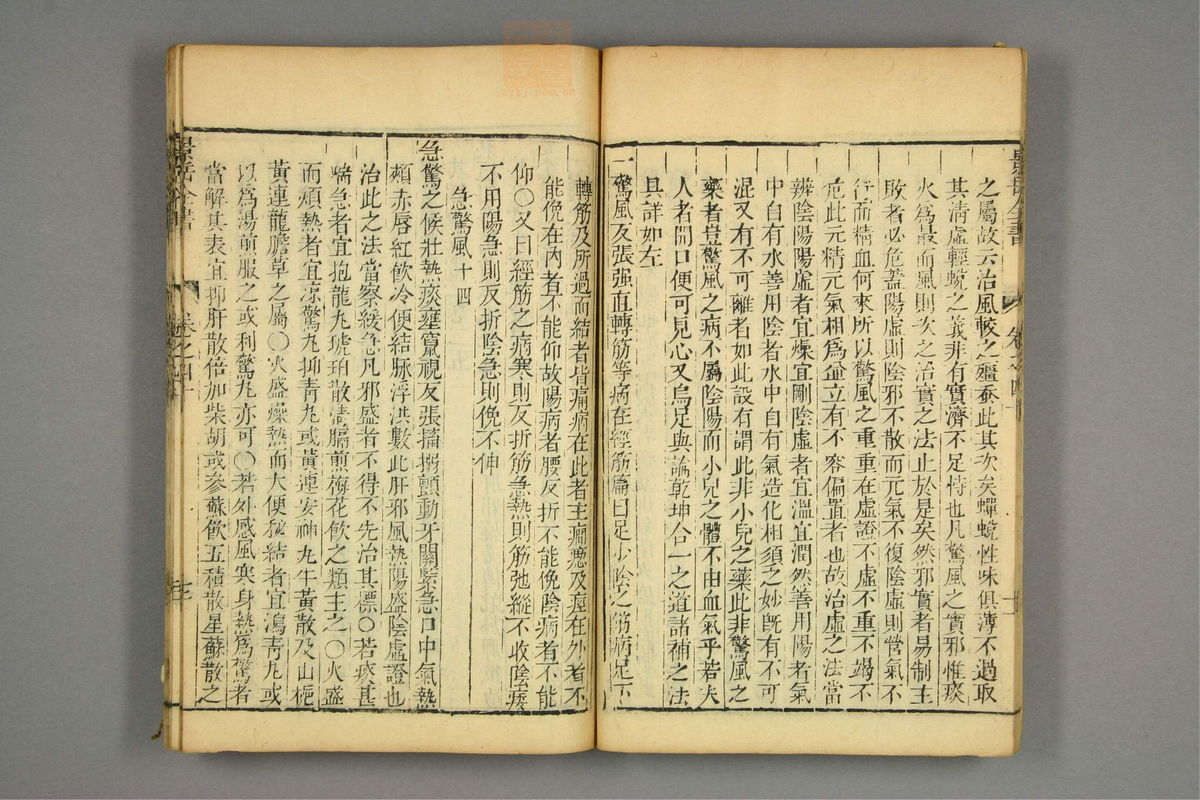 之屬故云治風較之殭蠶此其次矣蟬蛻性味俱薄不過取
其清虛輕蛻之義非有實濟不足恃也凡驚風之實邪惟痰
火爲最而風則次之治實之法止於是矣然邪實者易制主
敗者必危蓋陽虛則陰邪不散而元氣不復陰虛則營氣不
行而精血何來所以驚風之重重在虛證不虛不重不竭不
危此元精元氣相爲並立有不容偏置者也故治虛之法當
辨陰陽陽虛者宜燥宜剛陰虛者宜溫宜潤然善用陽者氣
中自有水善用陰者水中自有氣造化相須之妙旣有不可
混又有不可離者如此設有謂此非小兒之藥此非驚風之
藥者豈驚風之病不屬陰陽而小兒之體不由血氣乎若夫
人者開口便可見心又烏足與論乾坤合一之道諸補之法
具詳如左
一驚風反張强直轉筋等病在經筋篇曰足少陰之筋病足下
轉筋及所過而結者皆痛病在此者主癎瘛及痙在外者不
能俛在內者不能仰故陽病者腰反折不能俛陰病者不能
仰○又曰經筋之病寒則反折筋急熱則筋弛縱不收陰痿
不用陽急則反折陰急則俛不伸
急驚風十四
急驚之候壯熱痰壅竄視反張搐搦顫動牙關緊急口中氣熱
頰赤唇紅飲冷便結脉浮洪數此肝邪風熱陽盛陰虛證也
治此之法當察緩急凡邪盛者不得不先治其標○若痰甚
喘急者宜抱龍丸琥珀散清膈煎梅花飲之類主之○火盛
而煩熱者宜凉驚丸抑青丸或黃連安神丸牛黃散及山梔
黃連龍膽草之屬○火盛燥熱而大便秘結者宜瀉青丸或
以爲湯煎服之或利驚丸亦可○若外感風寒身熱爲驚者
當解其表宜抑肝散倍加柴胡或參蘇飲五積散星蘇散之
景岳全書
卷之四十
景岳全書
卷之四十